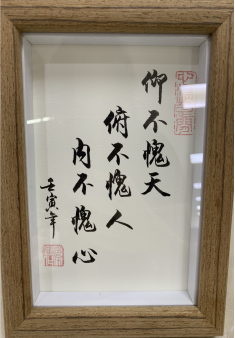 仰不愧天
俯不愧人
内不愧心
壬寅年